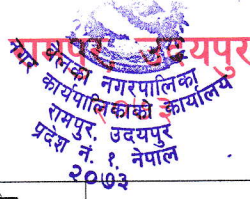 रामपुर, उदयपुर
बेलका नगरपालिका
नगर कार्यपालिकाको कार्यालय
रामपुर, उदयपुर
प्रदेश नं. १, नेपाल
२०७३